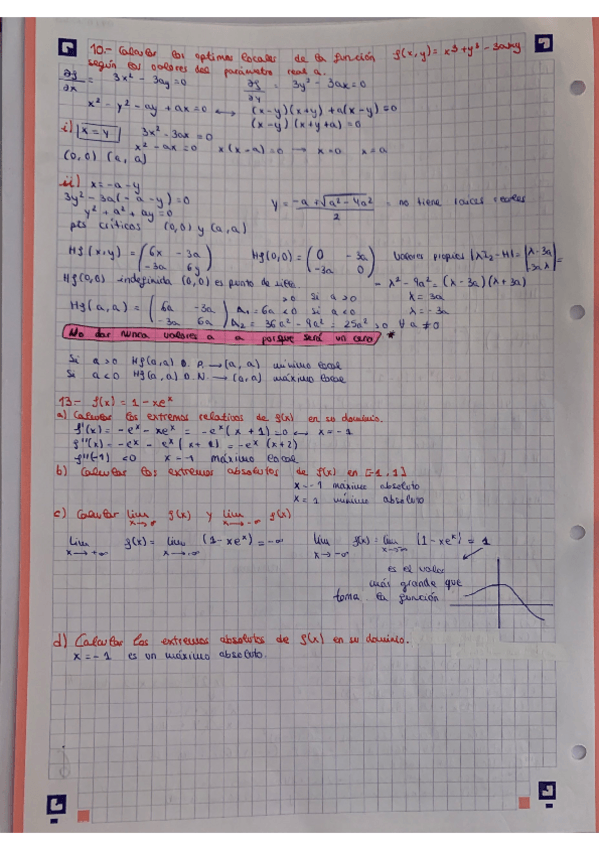 10.- Calcular los optimos locales de la función f(x,y) = x³ + y³ - 3axy
según los valores del parámetro real a.
∂f/∂x = 3x² - 3ay = 0    ∂f/∂y = 3y² - 3ax = 0
x² - y² - ay + ax = 0 ↔ (x-y)(x+y) + a(x-y) = 0
(x-y)(x+y+a) = 0
i) x = y    3x² - 3ax = 0
x² - ax = 0    x(x-a) = 0 → x=0    x = a
(0,0) (a,a)
ii) x = -a - y
3y² - 3a(-a-y) = 0    y = -a + √a² - 4a² / 2 = no tiene raices reales
y² + a² + ay = 0
pts críticos (0,0) y (a,a)
Hf(x,y) = (6x -3a / -3a 6y)    Hf(0,0) = (0 -3a / -3a 0)    Valores propios |λI₂ - H| = |λ -3a / -3a λ| =
Hf(0,0) indefinida (0,0) es punto de silla.    - λ² - 9a² = (λ - 3a)(λ + 3a)
>0 si a > 0    λ = 3a
Hf(a,a) = (6a -3a / -3a 6a)    Δ₁ = 6a <0 si a < 0    λ = -3a
Δ₂ = 36a² - 9a² = 25a² > 0 ∀ a ≠ 0
No dar nunca valores a a porque será un caso *
Si a > 0 Hf(a,a) D.P. → (a,a) mínimo local
Si a < 0 Hf(a,a) D.N. → (a,a) máximo local
13.- f(x) = 1 - xeˣ
a) Calcular los extremos relativos de f(x) en su dominio.
f'(x) = -eˣ - xeˣ = -eˣ(x+1) = 0 ↔ x = -1
f''(x) = -eˣ - eˣ(x+1) = -eˣ(x+2)
f''(-1) <0    x = -1 máximo local
b) Calcular los extremos absolutos de f(x) en [-1,1]
x = -1 máximo absoluto
x = 1 mínimo absoluto
c) Calcular lim x→∞ f(x) y lim x→-∞ f(x)
lim x→+∞ f(x) = lim x→∞ (1 - xeˣ) = -∞    lim x→-∞ f(x) = lim x→-∞ (1 - xeˣ) = 1
es el valor
más grande que
toma la función
d) Calcular los extremos absolutos de f(x) en su dominio.
x = -1 es un máximo absoluto.